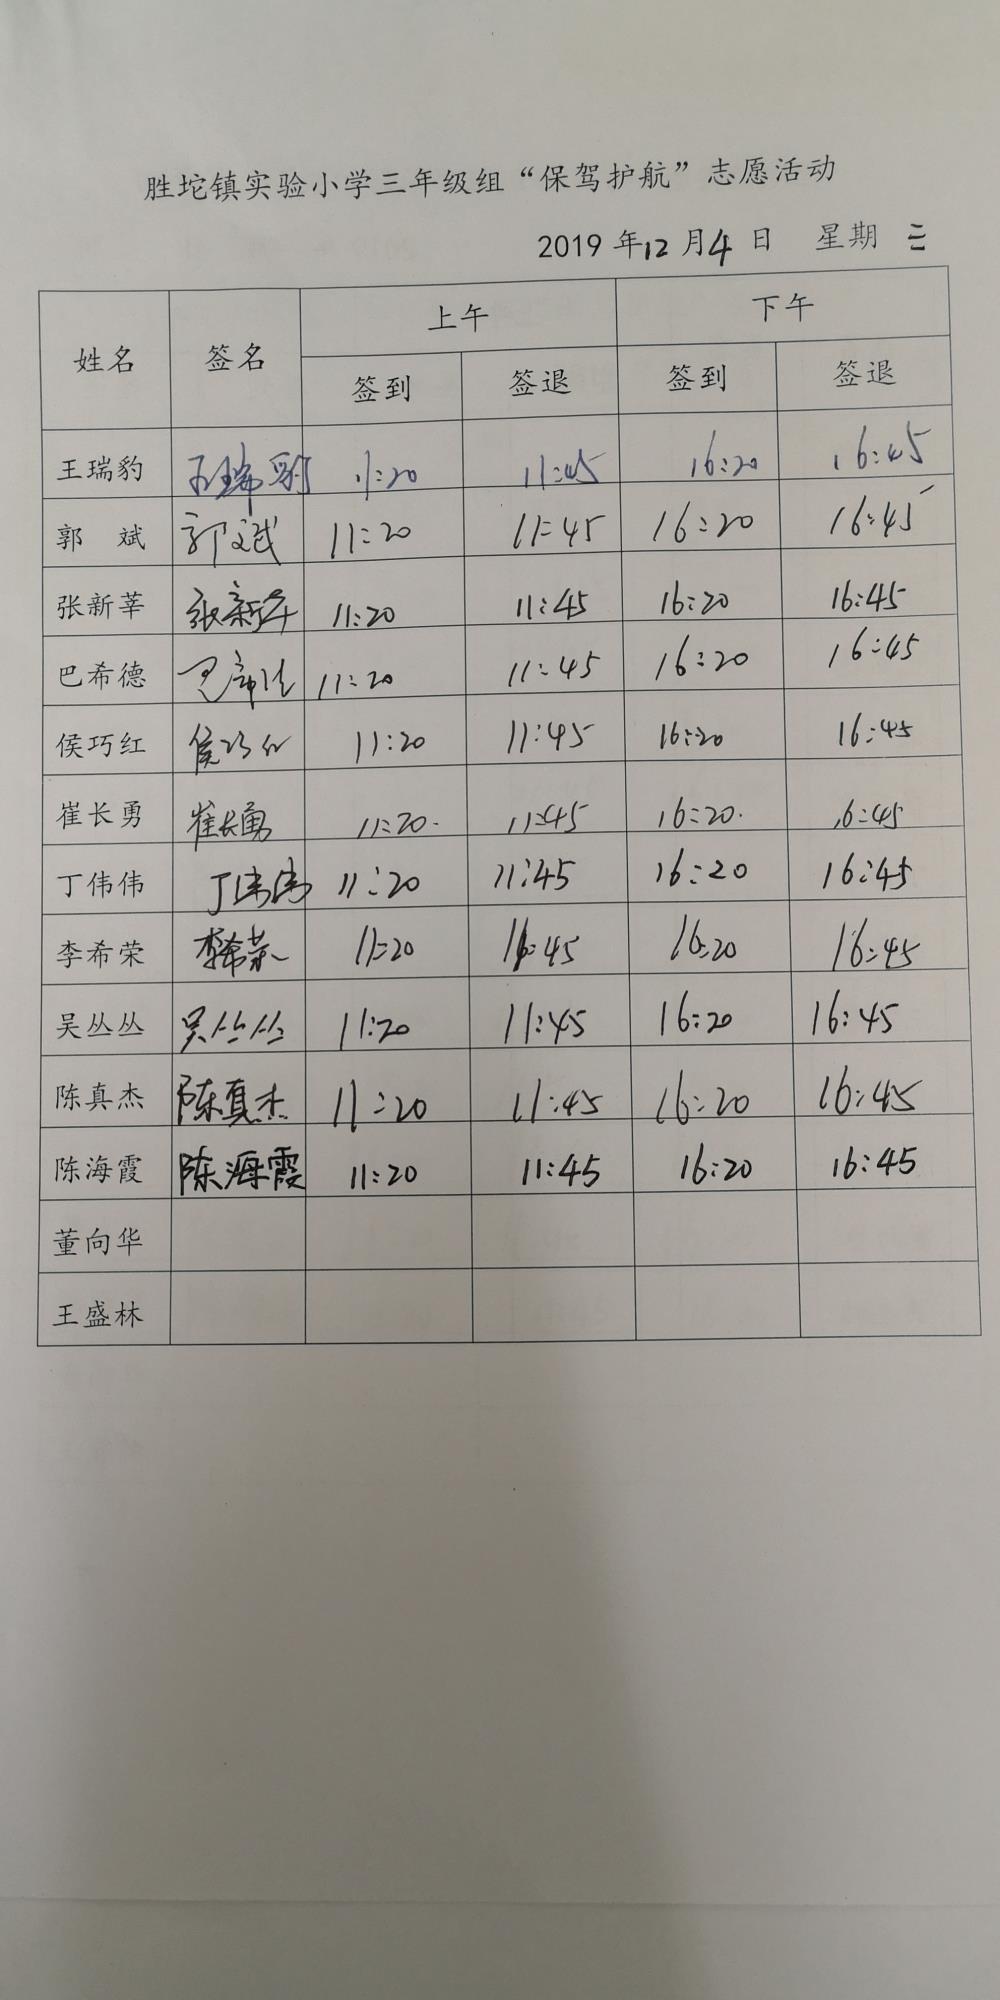 胜坨镇实验小学三年级组“保驾护航”志愿活动
2019 年12月4日 星期 三
姓名 签名 上午 下午
签到 签退 签到 签退
王瑞豹 王瑞豹 11:20 11:45 16:20 16:45
郭 斌 郭斌 11:20 11:45 16:20 16:45
张新莘 张新莘 11:20 11:45 16:20 16:45
巴希德 巴希德 11:20 11:45 16:20 16:45
侯巧红 侯巧红 11:20 11:45 16:20 16:45
崔长勇 崔长勇 11:20. 11:45 16:20. 16:45
丁伟伟 丁伟伟 11:20 11:45 16:20 16:45
李希荣 李希荣 11:20 11:45 16:20 16:45
吴丛丛 吴丛丛 11:20 11:45 16:20 16:45
陈真杰 陈真杰 11:20 11:45 16:20 16:45
陈海霞 陈海霞 11:20 11:45 16:20 16:45
董向华
王盛林